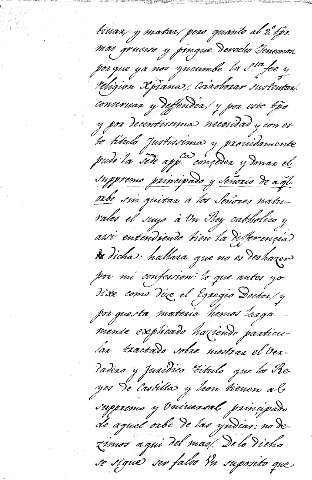 tivar, y matar, pero quanto al 2º tpo
mas grueso y pingue derecho tenemos
porque ya nos yncumbe la sta fee y
religion Xpiana, corroborar sustentar
conservar y deffender, y por este tpo
y por decentissima necesidad y con es
te titulo Justissima y proveidamente
pudo la sede appca conceder y donar el
suppremo principado y señorio de aql
orbe sin quitar a los Señores natu
rales el suyo a Un Rey catholico y
assi entendiendo bien la differencia
dicha: hallara que no es deshazer
por mi confession lo que antes yo
dixe como dize el Egregio Doctor, y
por questa materia hemos larga
mente explicado haziendo particu
lar tractado sobre mostrar el Ver
dadero y Juridico titulo que los Re
yes de Castilla y leon tienen al
supremo y Universal principado
de aquel orbe de las yndias: no de
zimos aqui del mas, De lo dicho
se sigue ser falso Un suppsito que